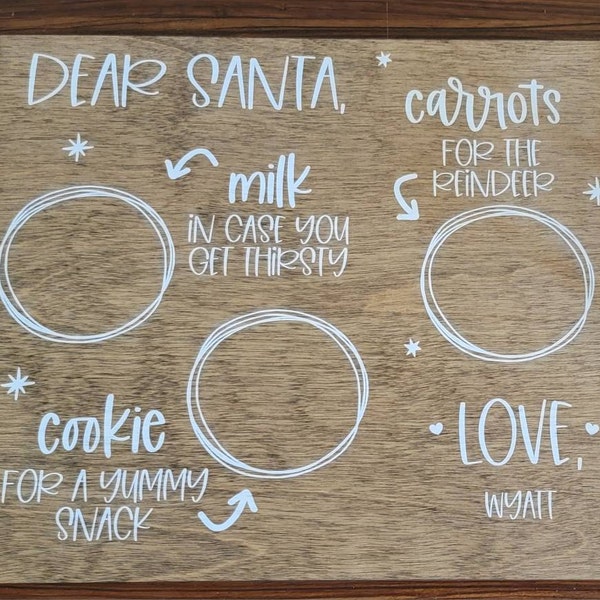 DEAR SANTA,
carrots
FOR THE
REINDEER
milk
IN CASE YOU
GET THIRSTY
cookie
FOR A YUMMY
SNACK
LOVE,
WYATT